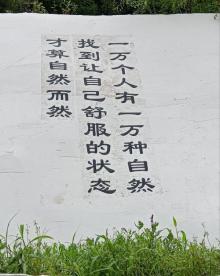 一万个人有一万种自然
找到让自己舒服的状态
才算自然而然